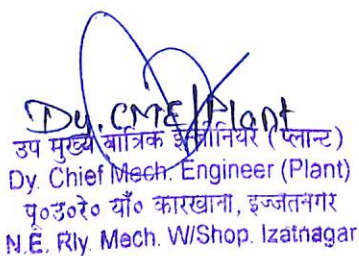 Dy. CME/Plant
उप मुख्य यांत्रिक इंजीनियर (प्लान्ट)
Dy. Chief Mech. Engineer (Plant)
पू०उ०रे० याँ० कारखाना, इज्जतनगर
N.E. Rly. Mech. W/Shop. Izatnagar